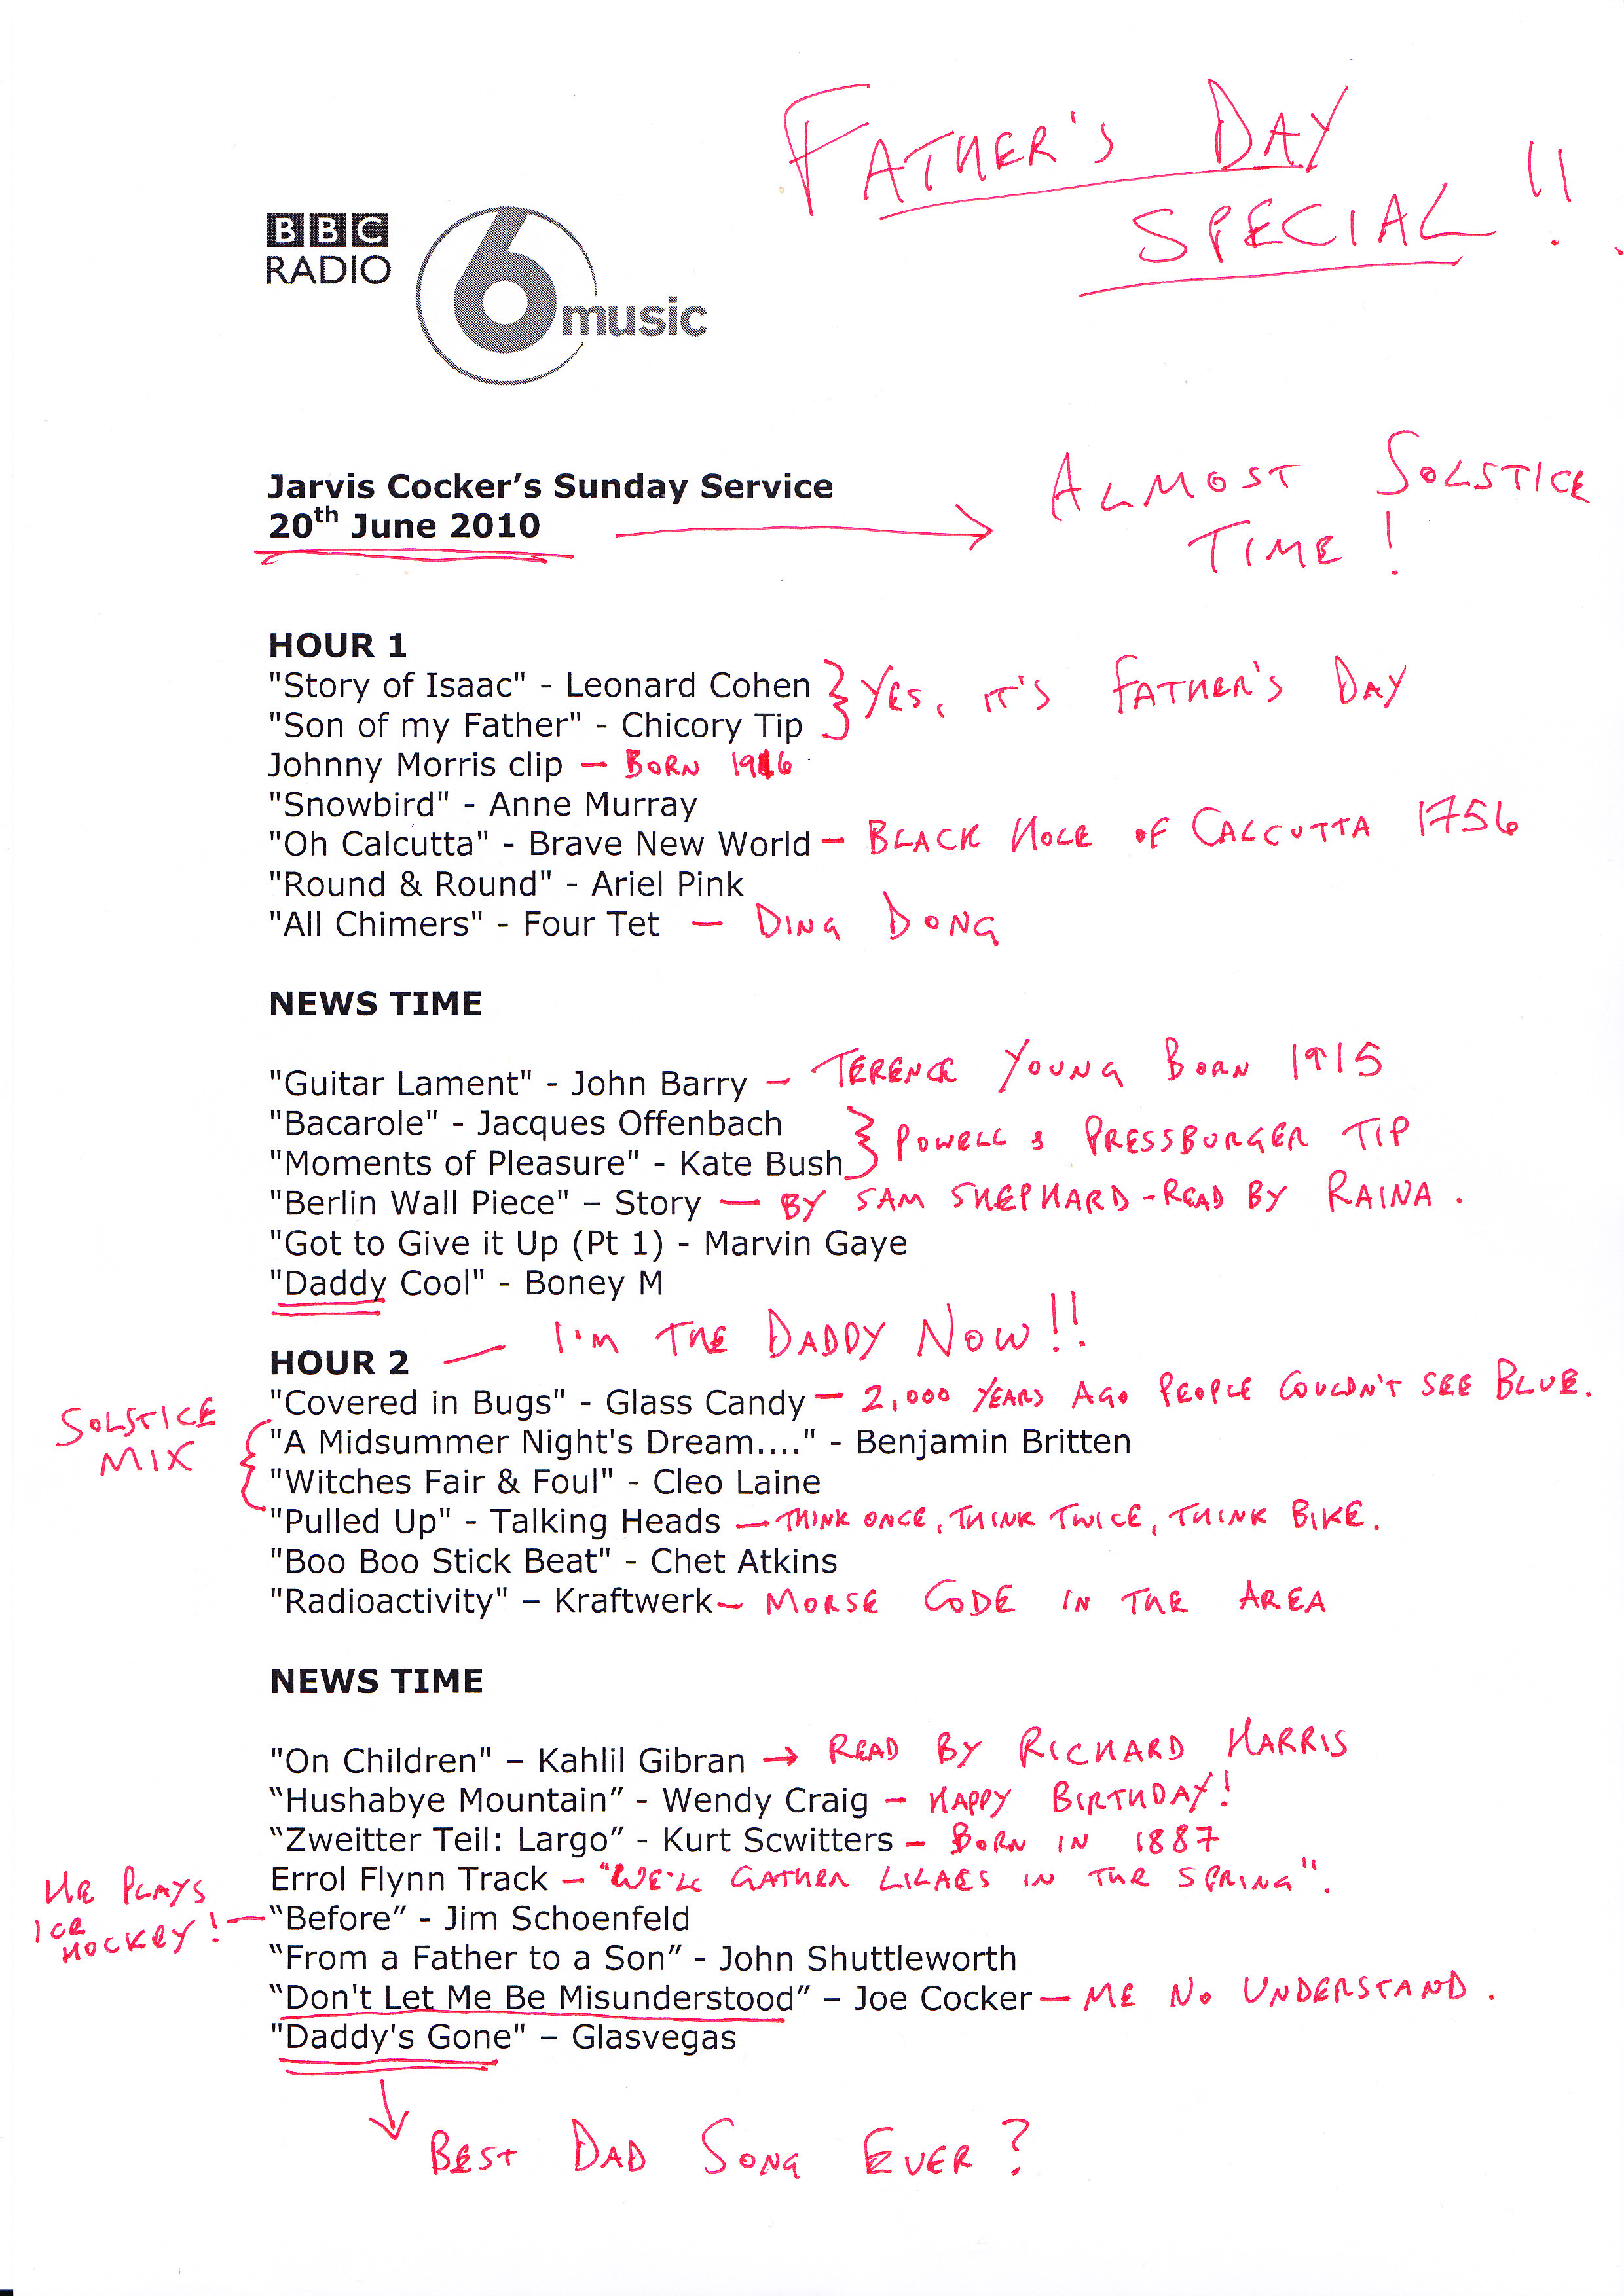 FATHER'S DAY
SPECIAL !!
BBC
RADIO
6music
Jarvis Cocker's Sunday Service
20th June 2010
ALMOST SOLSTICE
TIME!
HOUR 1
"Story of Isaac" - Leonard Cohen
"Son of my Father" - Chicory Tip
YES, IT'S FATHER'S DAY
Johnny Morris clip – BORN 1916
"Snowbird" - Anne Murray
"Oh Calcutta" - Brave New World – BLACK HOLE OF CALCUTTA 1756
"Round & Round" - Ariel Pink
"All Chimers" - Four Tet – DING DONG
NEWS TIME
"Guitar Lament" - John Barry – TERENCE YOUNG BORN 1915
"Bacarole" - Jacques Offenbach
"Moments of Pleasure" - Kate Bush
POWELL & PRESSBURGER TIP
"Berlin Wall Piece" – Story – BY SAM SHEPHARD - READ BY RAINA.
"Got to Give it Up (Pt 1) - Marvin Gaye
"Daddy Cool" - Boney M
HOUR 2 – I'M THE DADDY NOW!!
"Covered in Bugs" - Glass Candy – 2,000 YEARS AGO PEOPLE COULDN'T SEE BLUE.
SOLSTICE
MIX
"A Midsummer Night's Dream...." - Benjamin Britten
"Witches Fair & Foul" - Cleo Laine
"Pulled Up" - Talking Heads – THINK ONCE, THINK TWICE, THINK BIKE.
"Boo Boo Stick Beat" - Chet Atkins
"Radioactivity" – Kraftwerk – MORSE CODE IN THE AREA
NEWS TIME
"On Children" – Kahlil Gibran → READ BY RICHARD HARRIS
“Hushabye Mountain” - Wendy Craig – HAPPY BIRTHDAY!
“Zweitter Teil: Largo” - Kurt Scwitters – BORN IN 1887
Errol Flynn Track – "WE'LL GATHER LILACS IN THE SPRING".
HE PLAYS
ICE
HOCKEY!
“Before” - Jim Schoenfeld
“From a Father to a Son” - John Shuttleworth
“Don't Let Me Be Misunderstood” – Joe Cocker – ME NO UNDERSTAND.
"Daddy's Gone" – Glasvegas
BEST DAD SONG EVER?